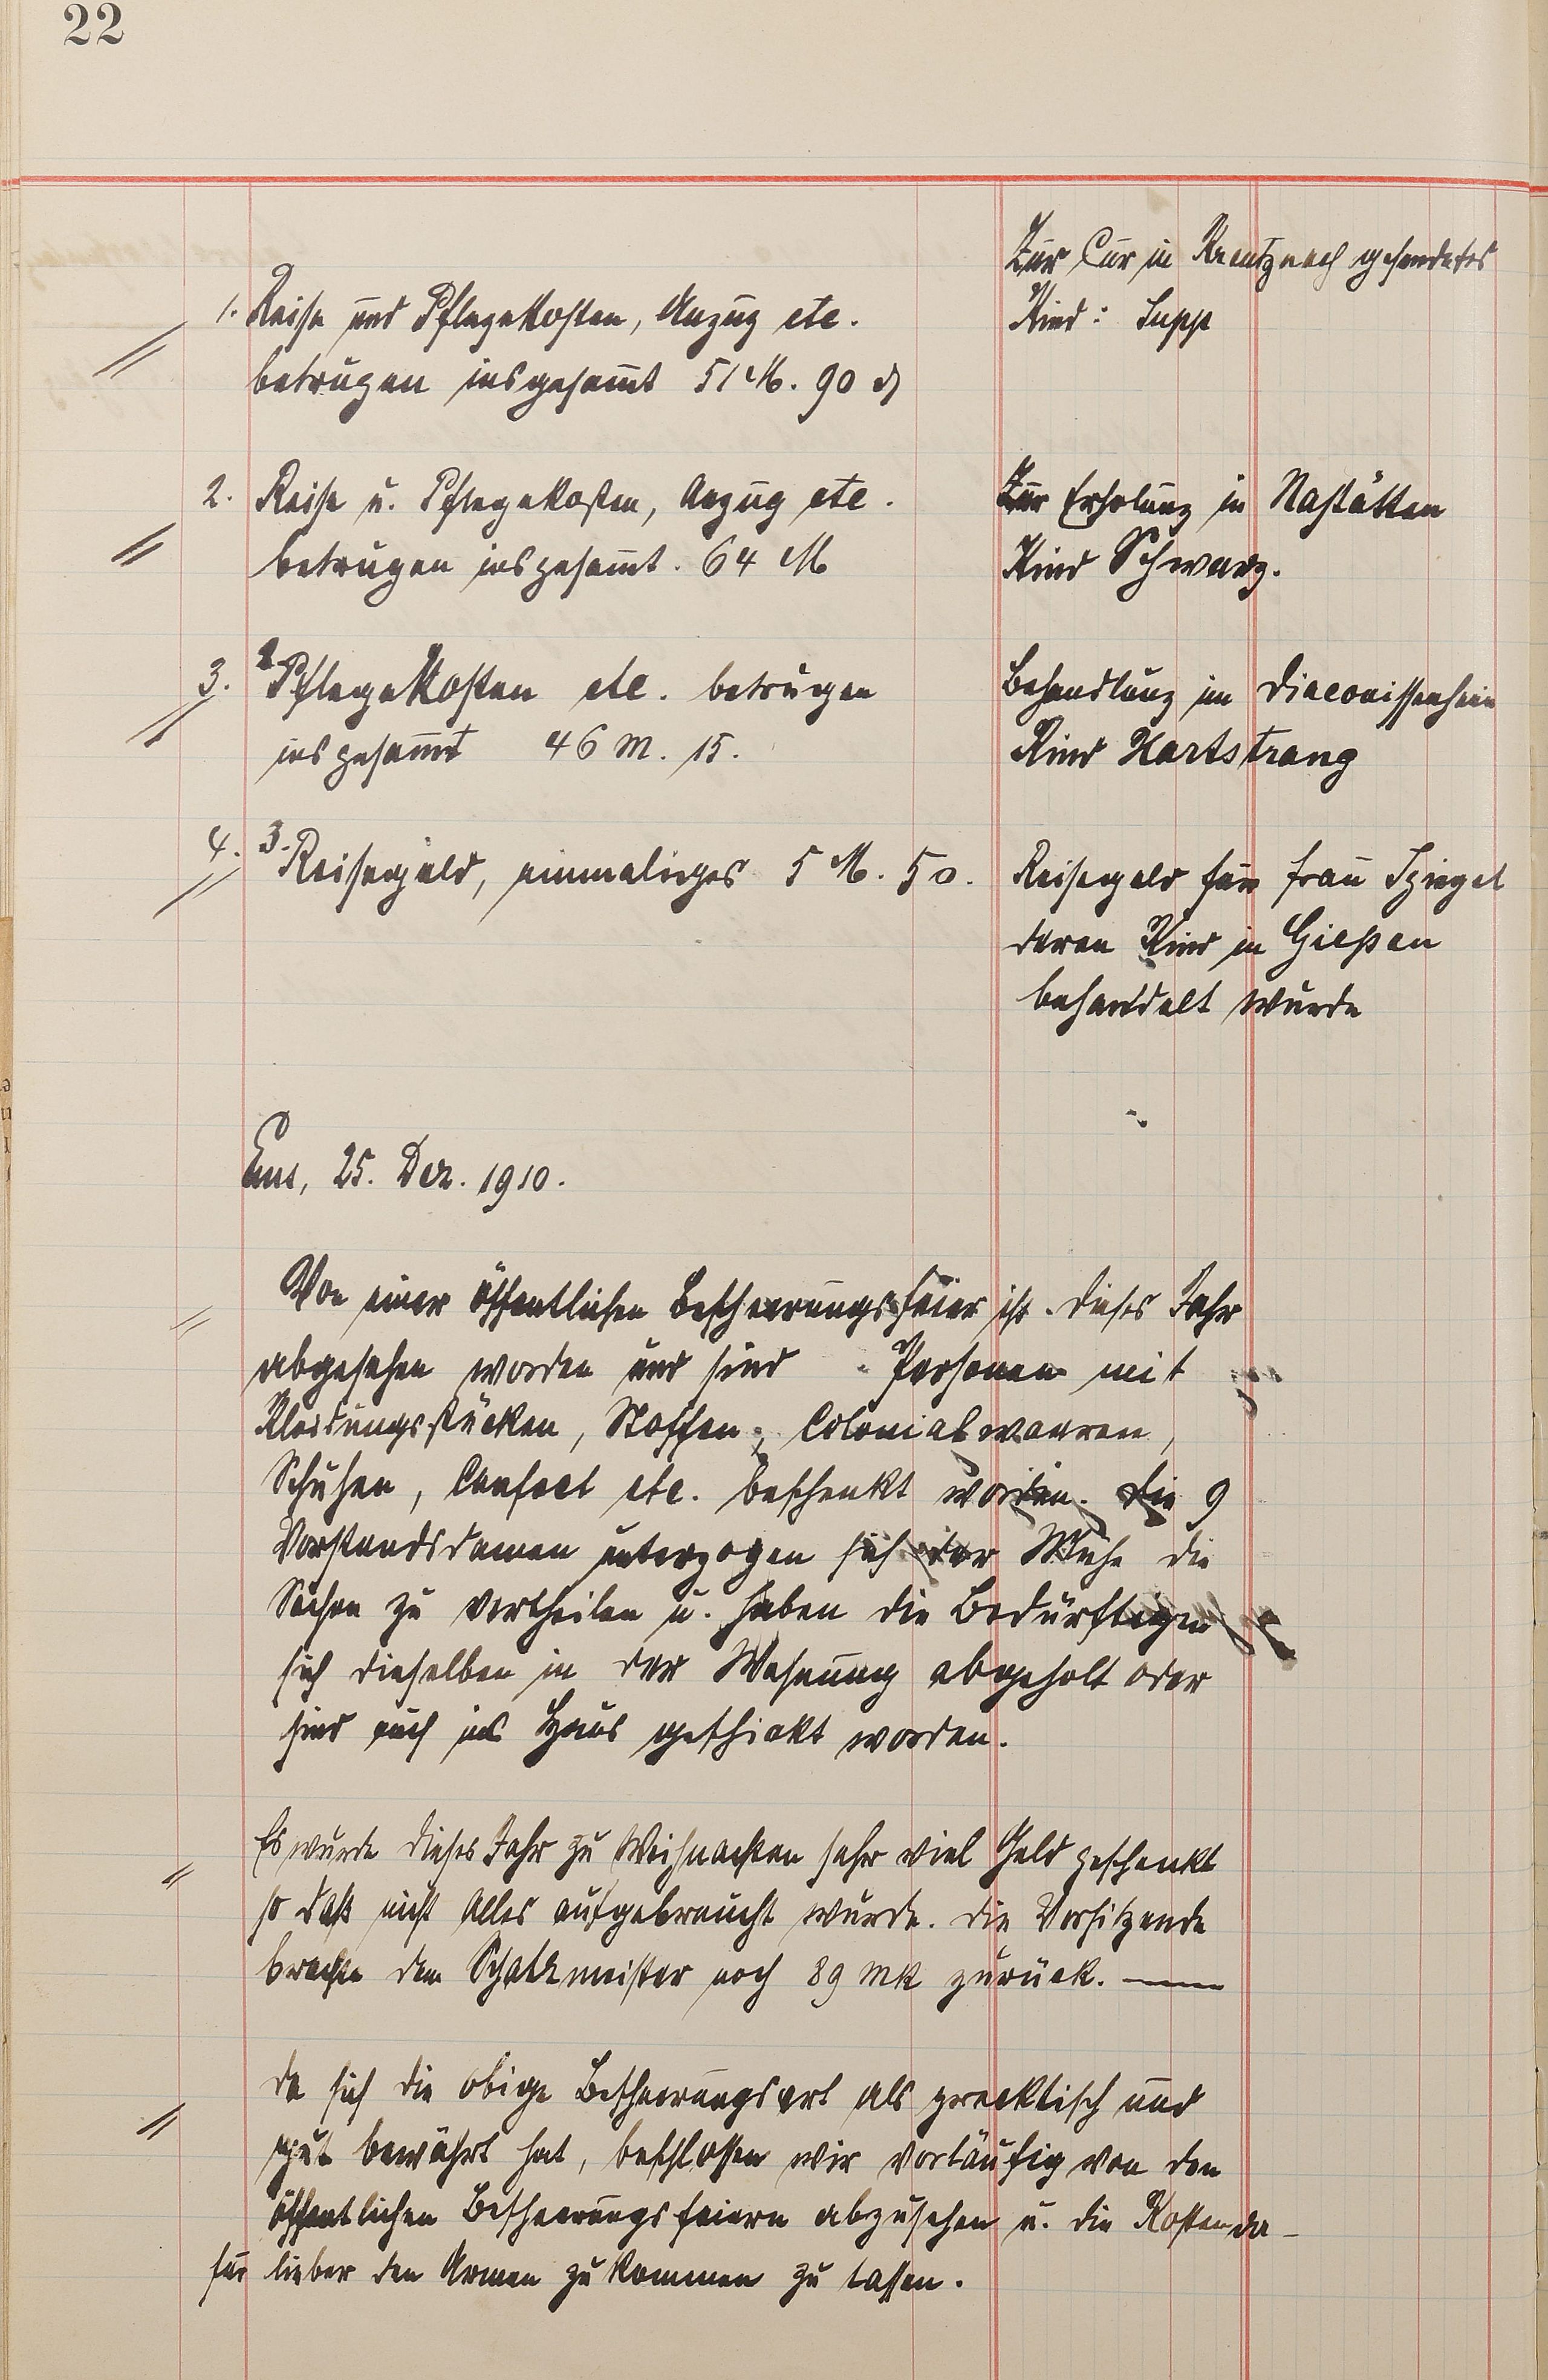 22
Zur Cur in Kreutznach gesendetes
Kind: Supp
1. Reise und Pflegekosten, Anzug etc.
betrugen insgesamt 51 M. 90 ₰
2. Reise u. Pflegekosten, Anzug etc.
betrugen insgesamt. 64 M
Zur Erholung in Nastätten
Kind Schwarz.
3. Pflegekosten etc. betrugen
insgesammt 46 M. 15.
Behandlung im Diaconissenheim
Kind Hartstrang
4. 3. Reisegeld, einmaliges 5 M. 50.
Reisegeld für Frau Spiegel
deren Kind in Gießen
behandelt wurde
Ems, 25. Dez. 1910.
Von einer öffentlichen Bescheerungsfeier ist dieses Jahr
abgesehen worden und sind Personen mit
Kleidungsstücken, Stoffen, Colonialwaaren,
Schuhen, Confect etc. beschenkt worden. Die 9
Vorstandsdamen unterzogen sich der Mühe die
Sachen zu vertheilen u. haben die Bedürftigen
sich dieselben in der Wohnung abgeholt oder
sind auch ins Haus geschickt worden.
Es wurde dieses Jahr zu Weihnachten sehr viel Geld geschenkt
so daß nicht Alles aufgebraucht wurde. Die Vorsitzende
brachte dem Schatzmeister noch 89 Mk zurück. —
Da sich die obige Bescheerungsart als praktisch und
gut bewährt hat, beschlossen wir vorläufig von den
öffentlichen Bescheerungsfeiern abzusehen u. die Kosten da-
für lieber den Armen zukommen zu lassen.